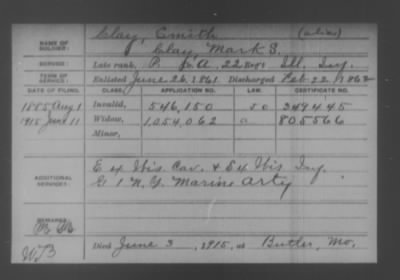 Clay, Emith (alias)
NAME OF SOLDIER: Clay, Mark S.
SERVICE: Late rank, P. A, 22 Reg't Ill. Inf.
TERM OF SERVICE: Enlisted June 26, 1861 Discharged Feb 22, 1862
DATE OF FILING. CLASS. APPLICATION NO. LAW. CERTIFICATE NO.
1885 Aug 1 Invalid, 546,150 349445
1915 June 11 Widow, 1,054,062 a 805566
Minor,
ADDITIONAL SERVICES: E 4 Wis. Cav. & E 4 Wis Inf.
G 1 N.Y. Marine Arty
REMARKS:
Died June 3, 1915, at Butler, Mo.